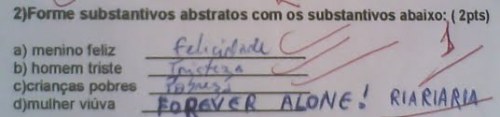 2)Forme substantivos abstratos com os substantivos abaixo: ( 2pts)
a) menino feliz felicidade
b) homem triste Tristeza
c)crianças pobres Pobreza
d)mulher viúva FOREVER ALONE! RIARIARIA